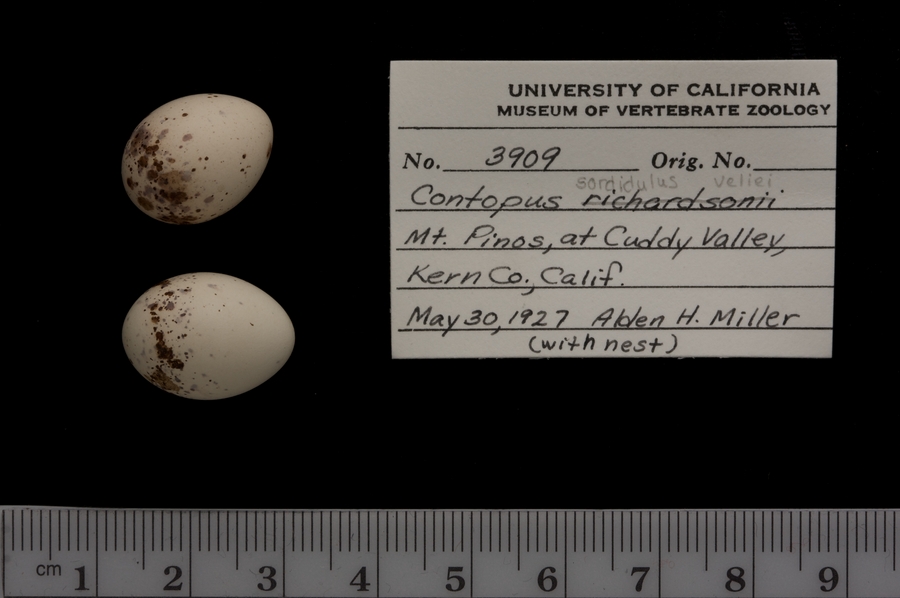 UNIVERSITY OF CALIFORNIA
MUSEUM OF VERTEBRATE ZOOLOGY
No. 3909 Orig. No.
sordidulus veliei
Contopus richardsonii
Mt. Pinos, at Cuddy Valley,
Kern Co., Calif.
May 30, 1927 Alden H. Miller
(with nest)
cm 1 2 3 4 5 6 7 8 9